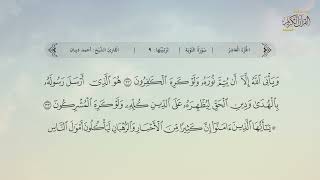 القرآن الكريم
الجزء العاشر | سورة التوبة | ترتيبها: ٩ | القارئ الشيخ: أحمد ديبان
وَيَأْبَى ٱللَّهُ إِلَّآ أَن يُتِمَّ نُورَهُۥ وَلَوْ كَرِهَ ٱلْكَٰفِرُونَ ٣٢ هُوَ ٱلَّذِىٓ أَرْسَلَ رَسُولَهُۥ
بِٱلْهُدَىٰ وَدِينِ ٱلْحَقِّ لِيُظْهِرَهُۥ عَلَى ٱلدِّينِ كُلِّهِۦ وَلَوْ كَرِهَ ٱلْمُشْرِكُونَ ٣٣
۞ يَٰٓأَيُّهَا ٱلَّذِينَ ءَامَنُوٓا۟ إِنَّ كَثِيرًا مِّنَ ٱلْأَحْبَارِ وَٱلرُّهْبَانِ لَيَأْكُلُونَ أَمْوَٰلَ ٱلنَّاسِ